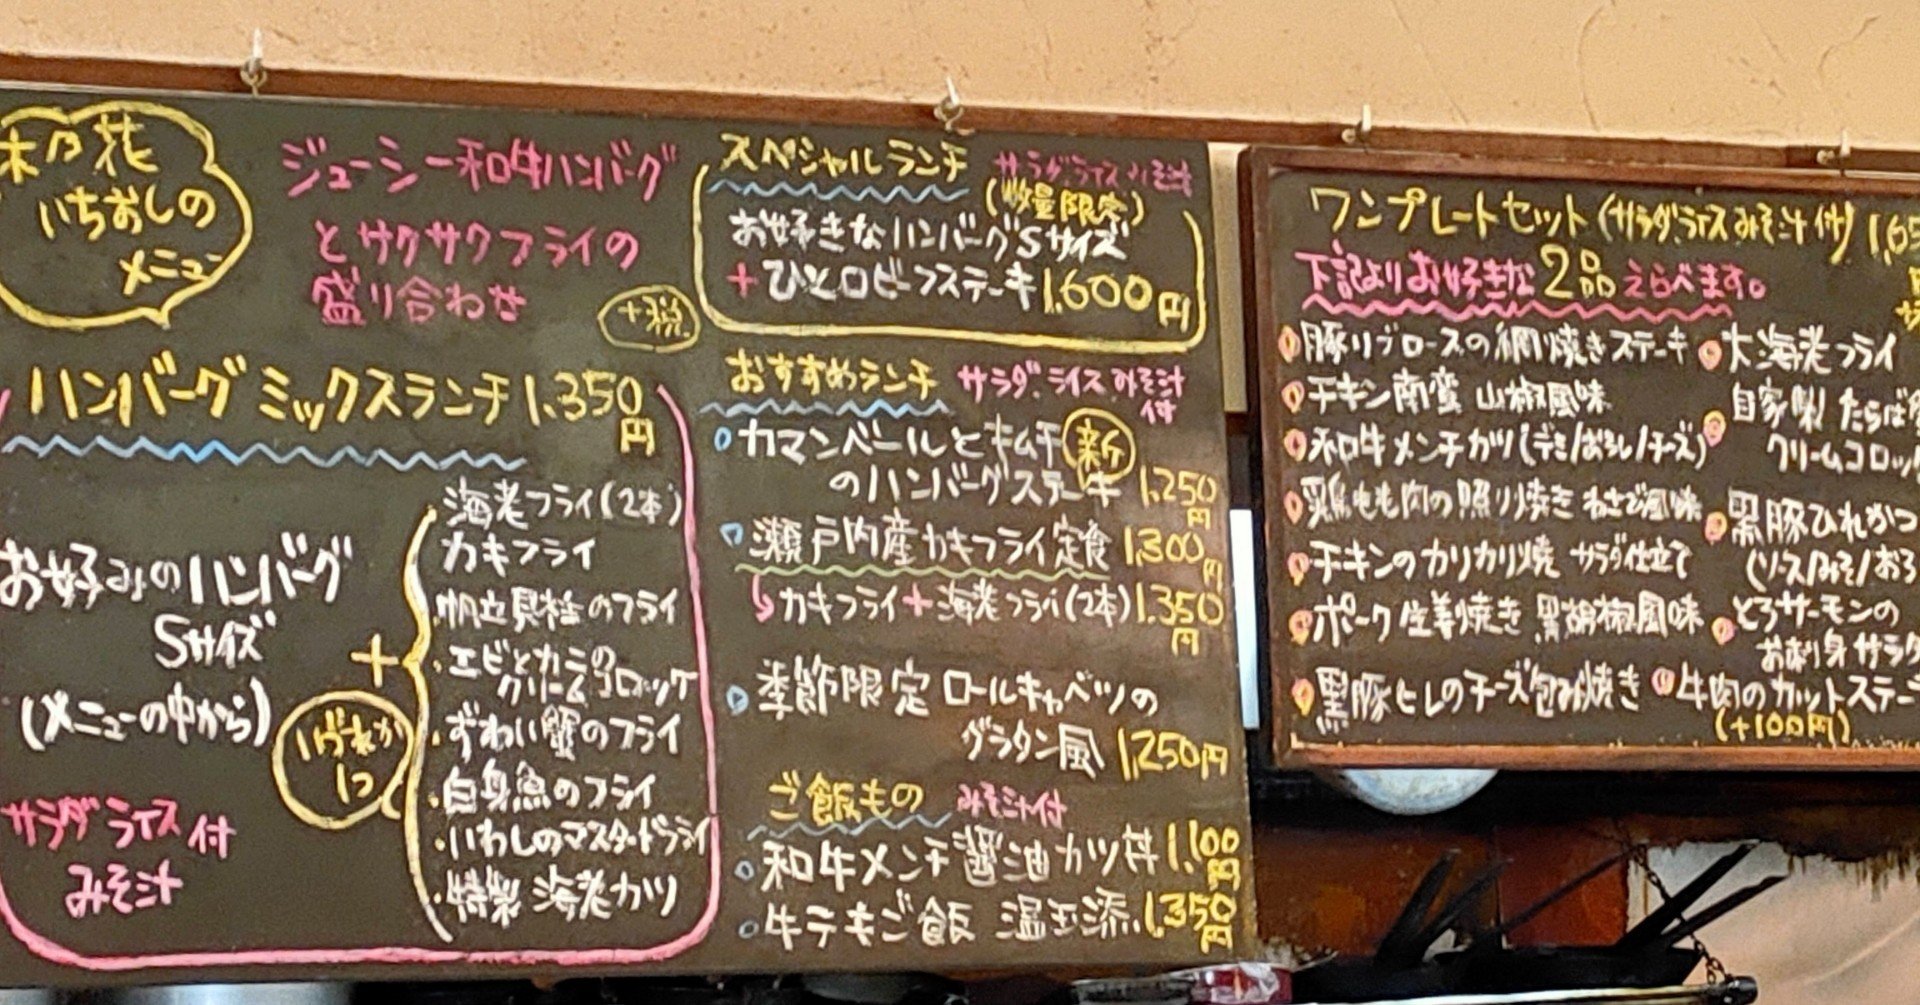 木乃花
いちおしの
メニュー
ジューシー和牛ハンバーグ
とサクサクフライの
盛り合わせ
+税
ハンバーグミックスランチ 1,350円
お好みのハンバーグ
Sサイズ
(メニューの中から)
サラダ ライス付
みそ汁
+
いずれか
1つ
海老フライ(2本)
カキフライ
・帆立貝柱のフライ
・エビとカニの
クリームコロッケ
・ずわい蟹のフライ
・白身魚のフライ
・いわしのマスタードフライ
・特製 海老カツ
スペシャルランチ サラダ.ライス.みそ汁
(数量限定)
お好きなハンバーグSサイズ
+ひと口ビーフステーキ 1,600円
おすすめランチ サラダ.ライス.みそ汁
付
カマンベールとキムチ 新
のハンバーグステーキ 1,250円
瀬戸内産カキフライ定食 1,300円
カキフライ+海老フライ(2本) 1,350円
季節限定 ロールキャベツの
グラタン風 1,250円
ご飯もの みそ汁付
和牛メンチ醤油カツ丼 1,100円
牛テキご飯 温玉添 1,350円
ワンプレートセット(サラダ、ライス みそ汁付) 1,65
円
下記よりお好きな2品えらべます。
豚リブロースの網焼きステーキ
チキン南蛮 山椒風味
和牛メンチカツ(デミ/おろし/チーズ)
鶏もも肉の照り焼き わさび風味
チキンのカリカリ焼 サラダ仕立て
ポーク生姜焼き 黒胡椒風味
黒豚ヒレのチーズ包み焼き
大海老フライ
自家製 たらば
クリームコロッ
黒豚ひれかつ
(ソース/みそ/おろ
とろサーモンの
お刺身サラダ
牛肉のカットステー
(+100円)